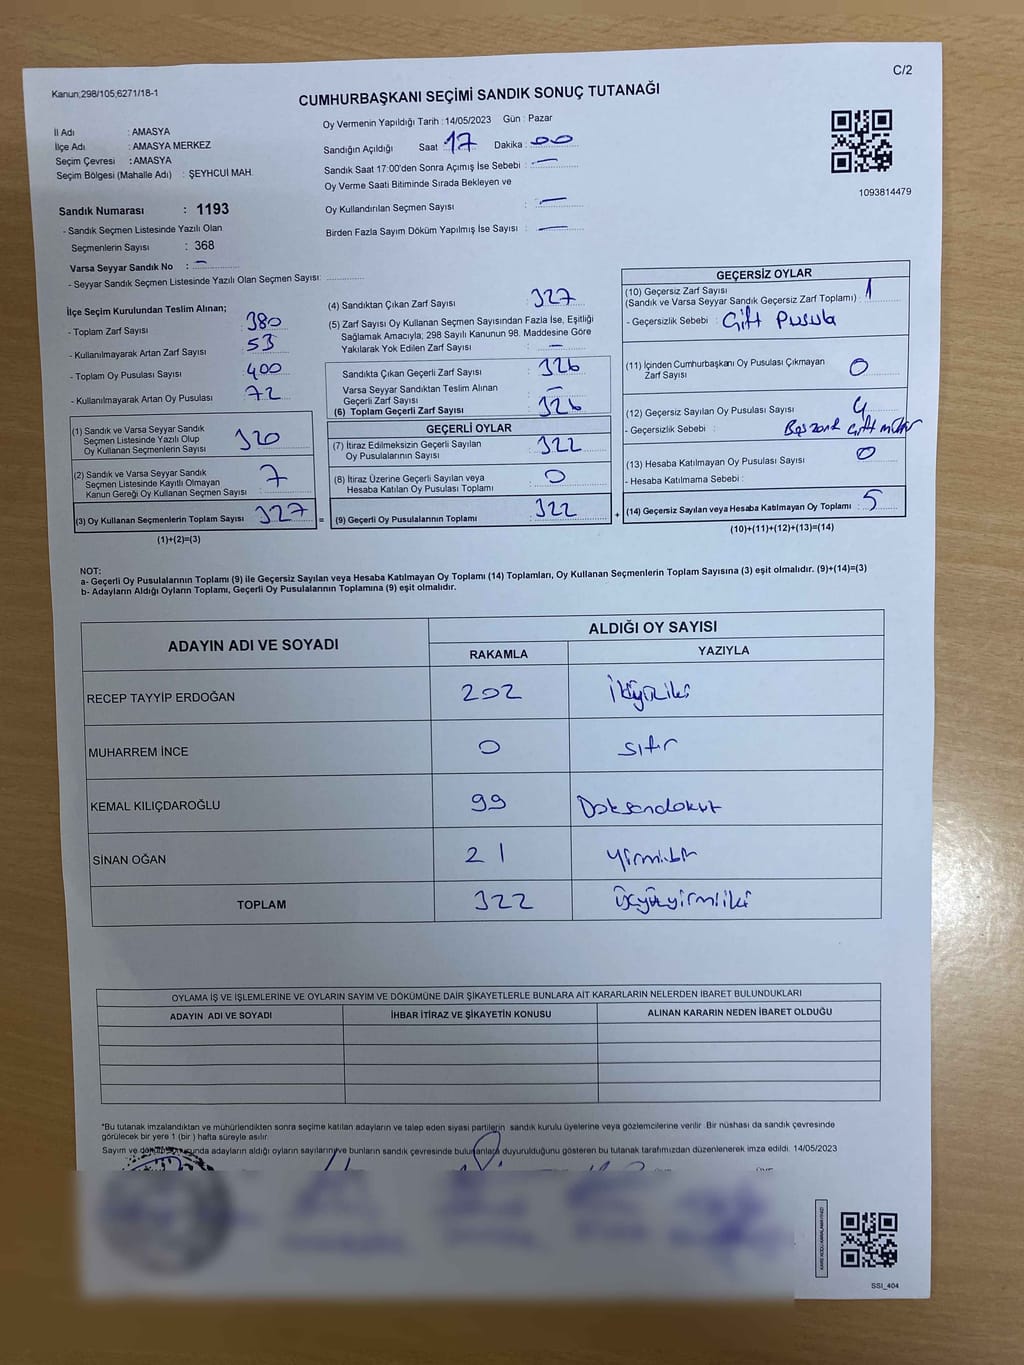 C/2
Kanun;298/105,6271/18-1
CUMHURBAŞKANI SEÇİMİ SANDIK SONUÇ TUTANAĞI
İl Adı : AMASYA
İlçe Adı : AMASYA MERKEZ
Seçim Çevresi : AMASYA
Seçim Bölgesi (Mahalle Adı) : ŞEYHCUİ MAH.
Oy Vermenin Yapıldığı Tarih : 14/05/2023 Gün : Pazar
Sandığın Açıldığı Saat : 17 Dakika : 00
Sandık Saat 17:00'den Sonra Açımış İse Sebebi : —
Oy Verme Saati Bitiminde Sırada Bekleyen ve
Oy Kullandırılan Seçmen Sayısı : —
Birden Fazla Sayım Döküm Yapılmış İse Sayısı : —
1093814479
Sandık Numarası : 1193
- Sandık Seçmen Listesinde Yazılı Olan
Seçmenlerin Sayısı : 368
Varsa Seyyar Sandık No : —
- Seyyar Sandık Seçmen Listesinde Yazılı Olan Seçmen Sayısı:
İlçe Seçim Kurulundan Teslim Alınan;
- Toplam Zarf Sayısı : 380
- Kullanılmayarak Artan Zarf Sayısı : 53
- Toplam Oy Pusulası Sayısı : 400
- Kullanılmayarak Artan Oy Pusulası : 72
(1) Sandık ve Varsa Seyyar Sandık
Seçmen Listesinde Yazılı Olup
Oy Kullanan Seçmenlerin Sayısı : 320
(2) Sandık ve Varsa Seyyar Sandık
Seçmen Listesinde Kayıtlı Olmayan
Kanun Gereği Oy Kullanan Seçmen Sayısı : 7
(3) Oy Kullanan Seçmenlerin Toplam Sayısı : 327 =
(1)+(2)=(3)
(4) Sandıktan Çıkan Zarf Sayısı : 327
(5) Zarf Sayısı Oy Kullanan Seçmen Sayısından Fazla İse, Eşitliği
Sağlamak Amacıyla; 298 Sayılı Kanunun 98. Maddesine Göre
Yakılarak Yok Edilen Zarf Sayısı : —
Sandıkta Çıkan Geçerli Zarf Sayısı : 326
Varsa Seyyar Sandıktan Teslim Alınan
Geçerli Zarf Sayısı : —
(6) Toplam Geçerli Zarf Sayısı : 326
GEÇERLİ OYLAR
(7) İtiraz Edilmeksizin Geçerli Sayılan
Oy Pusulalarının Sayısı : 322
(8) İtiraz Üzerine Geçerli Sayılan veya
Hesaba Katılan Oy Pusulası Toplamı : 0
(9) Geçerli Oy Pusulalarının Toplamı : 322 +
GEÇERSİZ OYLAR
(10) Geçersiz Zarf Sayısı
(Sandık ve Varsa Seyyar Sandık Geçersiz Zarf Toplamı) : 1
- Geçersizlik Sebebi : Çift Pusula
(11) İçinden Cumhurbaşkanı Oy Pusulası Çıkmayan
Zarf Sayısı : 0
(12) Geçersiz Sayılan Oy Pusulası Sayısı : 4
- Geçersizlik Sebebi : Çift mühür
(13) Hesaba Katılmayan Oy Pusulası Sayısı : 0
- Hesaba Katılmama Sebebi :
(14) Geçersiz Sayılan veya Hesaba Katılmayan Oy Toplamı : 5
(10)+(11)+(12)+(13)=(14)
NOT:
a- Geçerli Oy Pusulalarının Toplamı (9) ile Geçersiz Sayılan veya Hesaba Katılmayan Oy Toplamı (14) Toplamları, Oy Kullanan Seçmenlerin Toplam Sayısına (3) eşit olmalıdır. (9)+(14)=(3)
b- Adayların Aldığı Oyların Toplamı, Geçerli Oy Pusulalarının Toplamına (9) eşit olmalıdır.
ADAYIN ADI VE SOYADI ALDIĞI OY SAYISI
RAKAMLA YAZIYLA
RECEP TAYYİP ERDOĞAN 202 İkiyüziki
MUHARREM İNCE 0 sıfır
KEMAL KILIÇDAROĞLU 99 Doksandokuz
SİNAN OĞAN 21 Yirmibir
TOPLAM 322 Üçyüzyirmiiki
OYLAMA İŞ VE İŞLEMLERİNE VE OYLARIN SAYIM VE DÖKÜMÜNE DAİR ŞİKAYETLERLE BUNLARA AİT KARARLARIN NELERDEN İBARET BULUNDUKLARI
ADAYIN ADI VE SOYADI İHBAR İTİRAZ VE ŞİKAYETİN KONUSU ALINAN KARARIN NEDEN İBARET OLDUĞU
*Bu tutanak imzalandıktan ve mühürlendikten sonra seçime katılan adayların ve talep eden siyasi partilerin sandık kurulu üyelerine veya gözlemcilerine verilir .Bir nüshası da sandık çevresinde
görülecek bir yere 1 (bir ) hafta süreyle asılır.
Sayım ve adayların aldığı oyların sayılarını ve bunların sandık çevresinde bulunanlara duyurulduğunu gösteren bu tutanak tarafımızdan düzenlenerek imza edildi. 14/05/2023
SSI_404